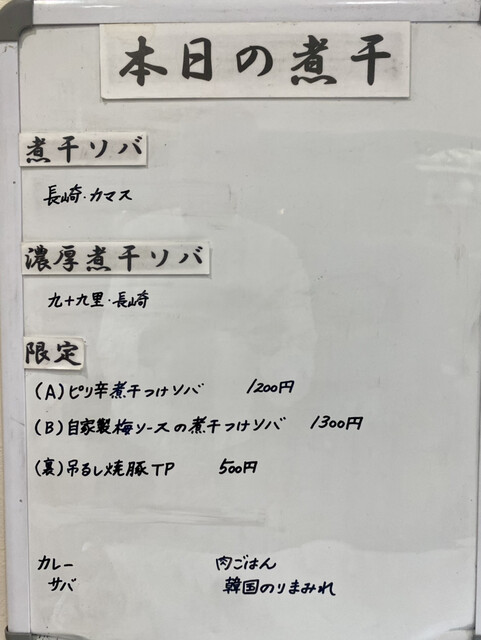 本日の煮干
煮干ソバ
長崎・カマス
濃厚煮干ソバ
九十九里・長崎
限定
(A)ピリ辛煮干つけソバ 1200円
(B)自家製梅ソースの煮干つけソバ 1300円
(裏)吊るし焼豚TP 500円
カレー 肉ごはん
サバ 韓国のりまみれ